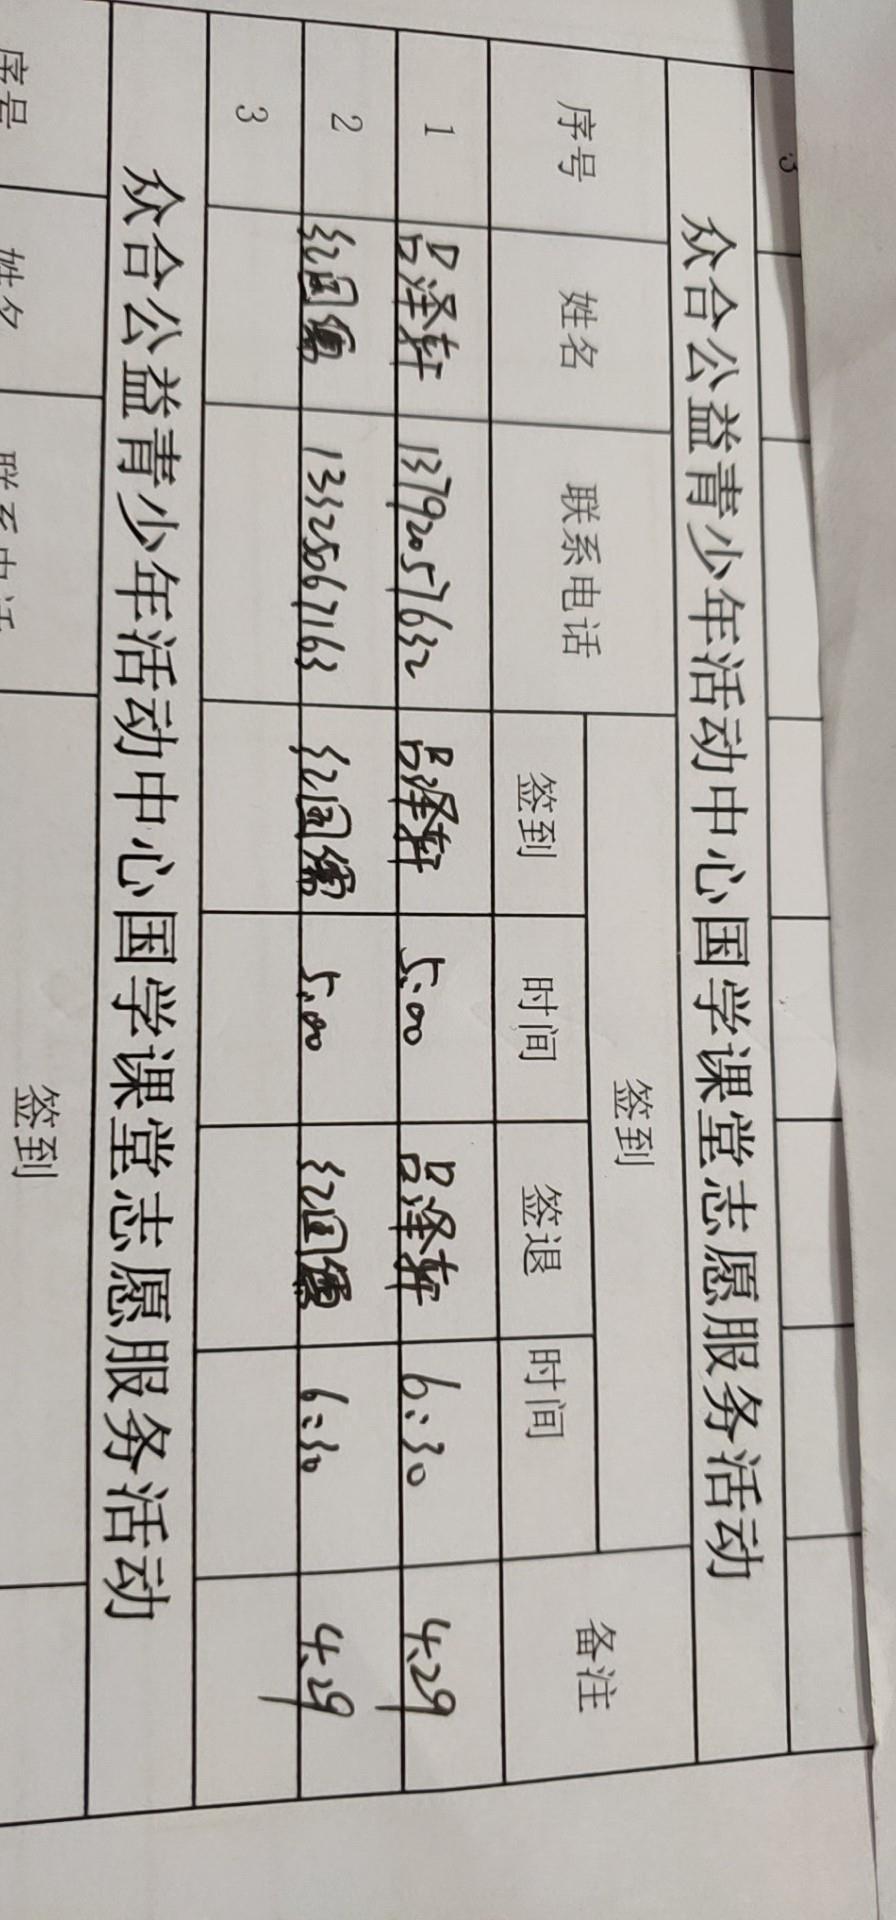 3
众合公益青少年活动中心国学课堂志愿服务活动
序号 姓名 联系电话 签到 备注
签到 时间 签退 时间
1 吕泽轩 13792057632 吕泽轩 5:00 吕泽轩 6:30 4.29
2 13325067163 5:00 6:30 4.29
3
众合公益青少年活动中心国学课堂志愿服务活动
序号 姓名 联系电话 签到